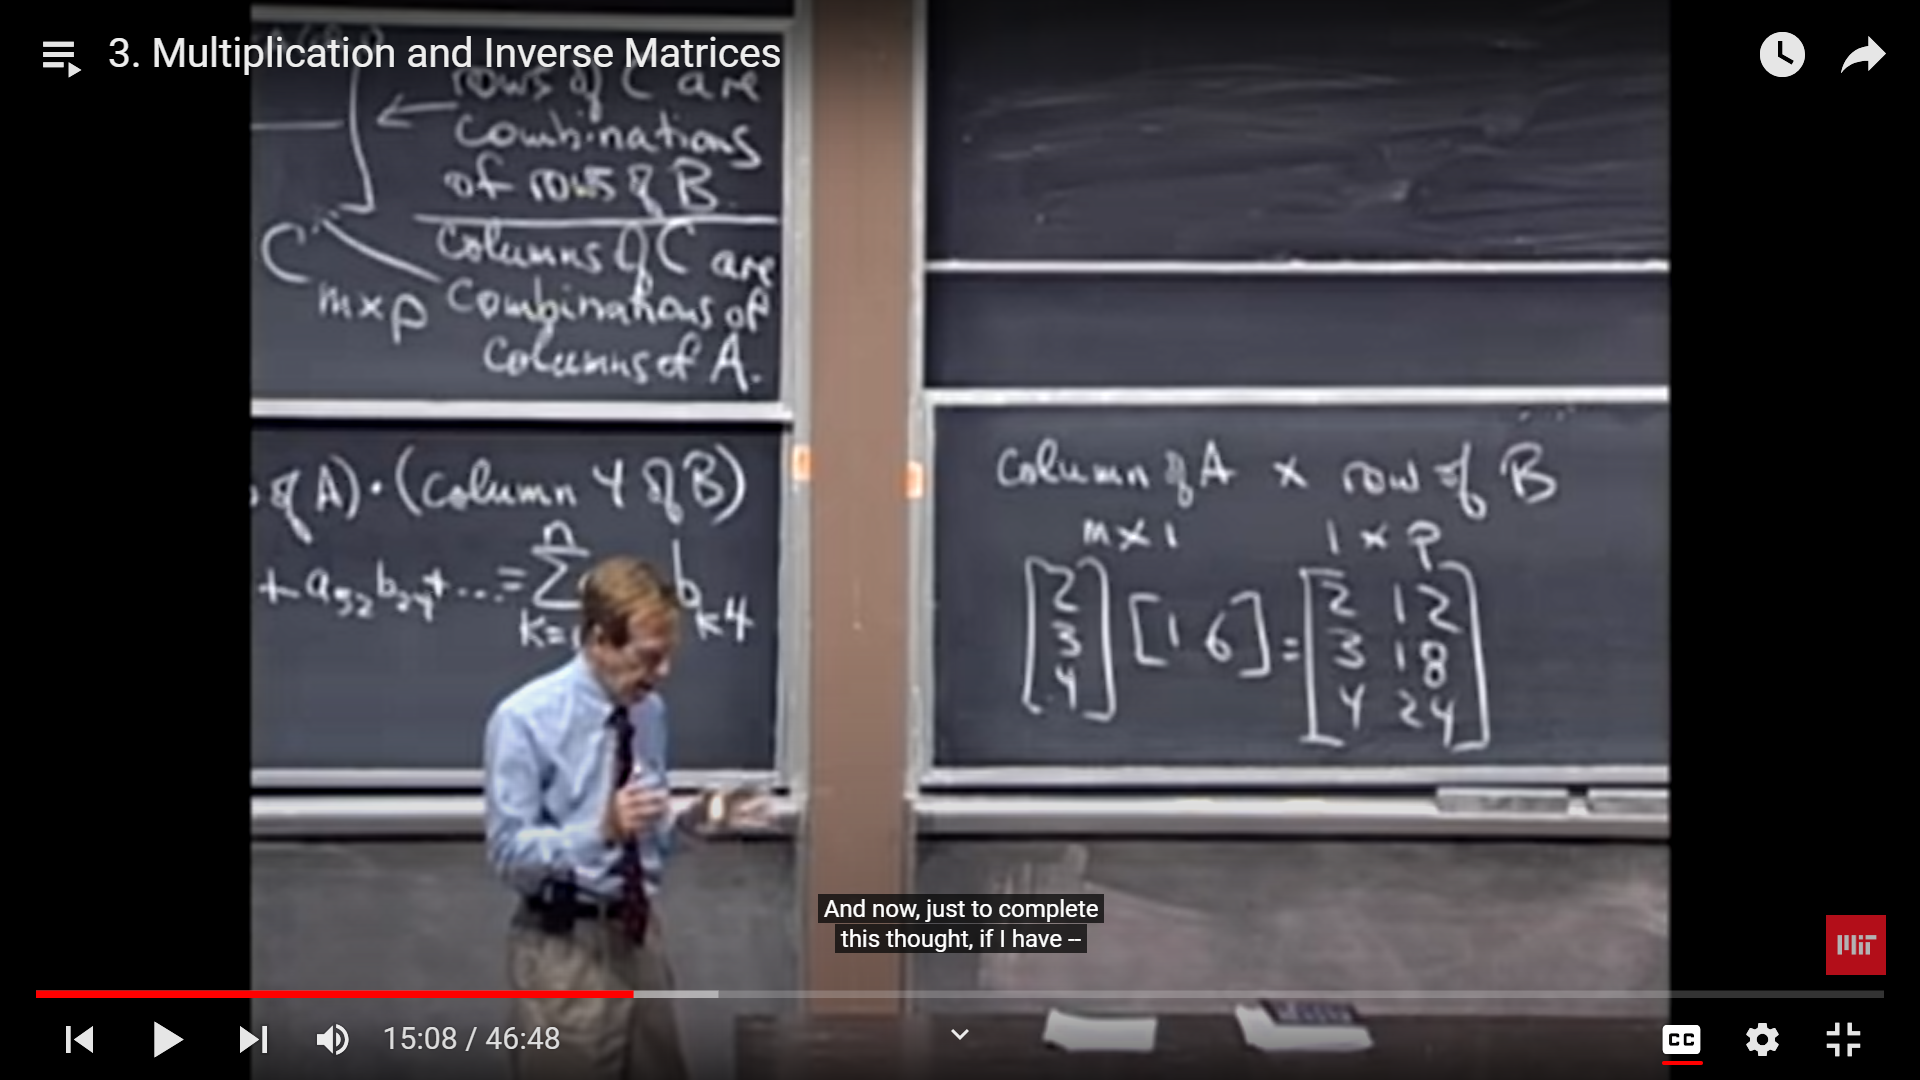 3. Multiplication and Inverse Matrices
rows of C are
combinations
of rows of B.
C
m×p
columns of C are
combinations of
columns of A.
of A)·(column 4 of B)
+a₃₂b₂₄+...=
n
Σ
k=
b
k4
column of A × row of B
m×1
1×p
[2
3
4]
[1 6]
=
[2 12
3 18
4 24]
And now, just to complete
this thought, if I have --
MIT
15:08 / 46:48
CC